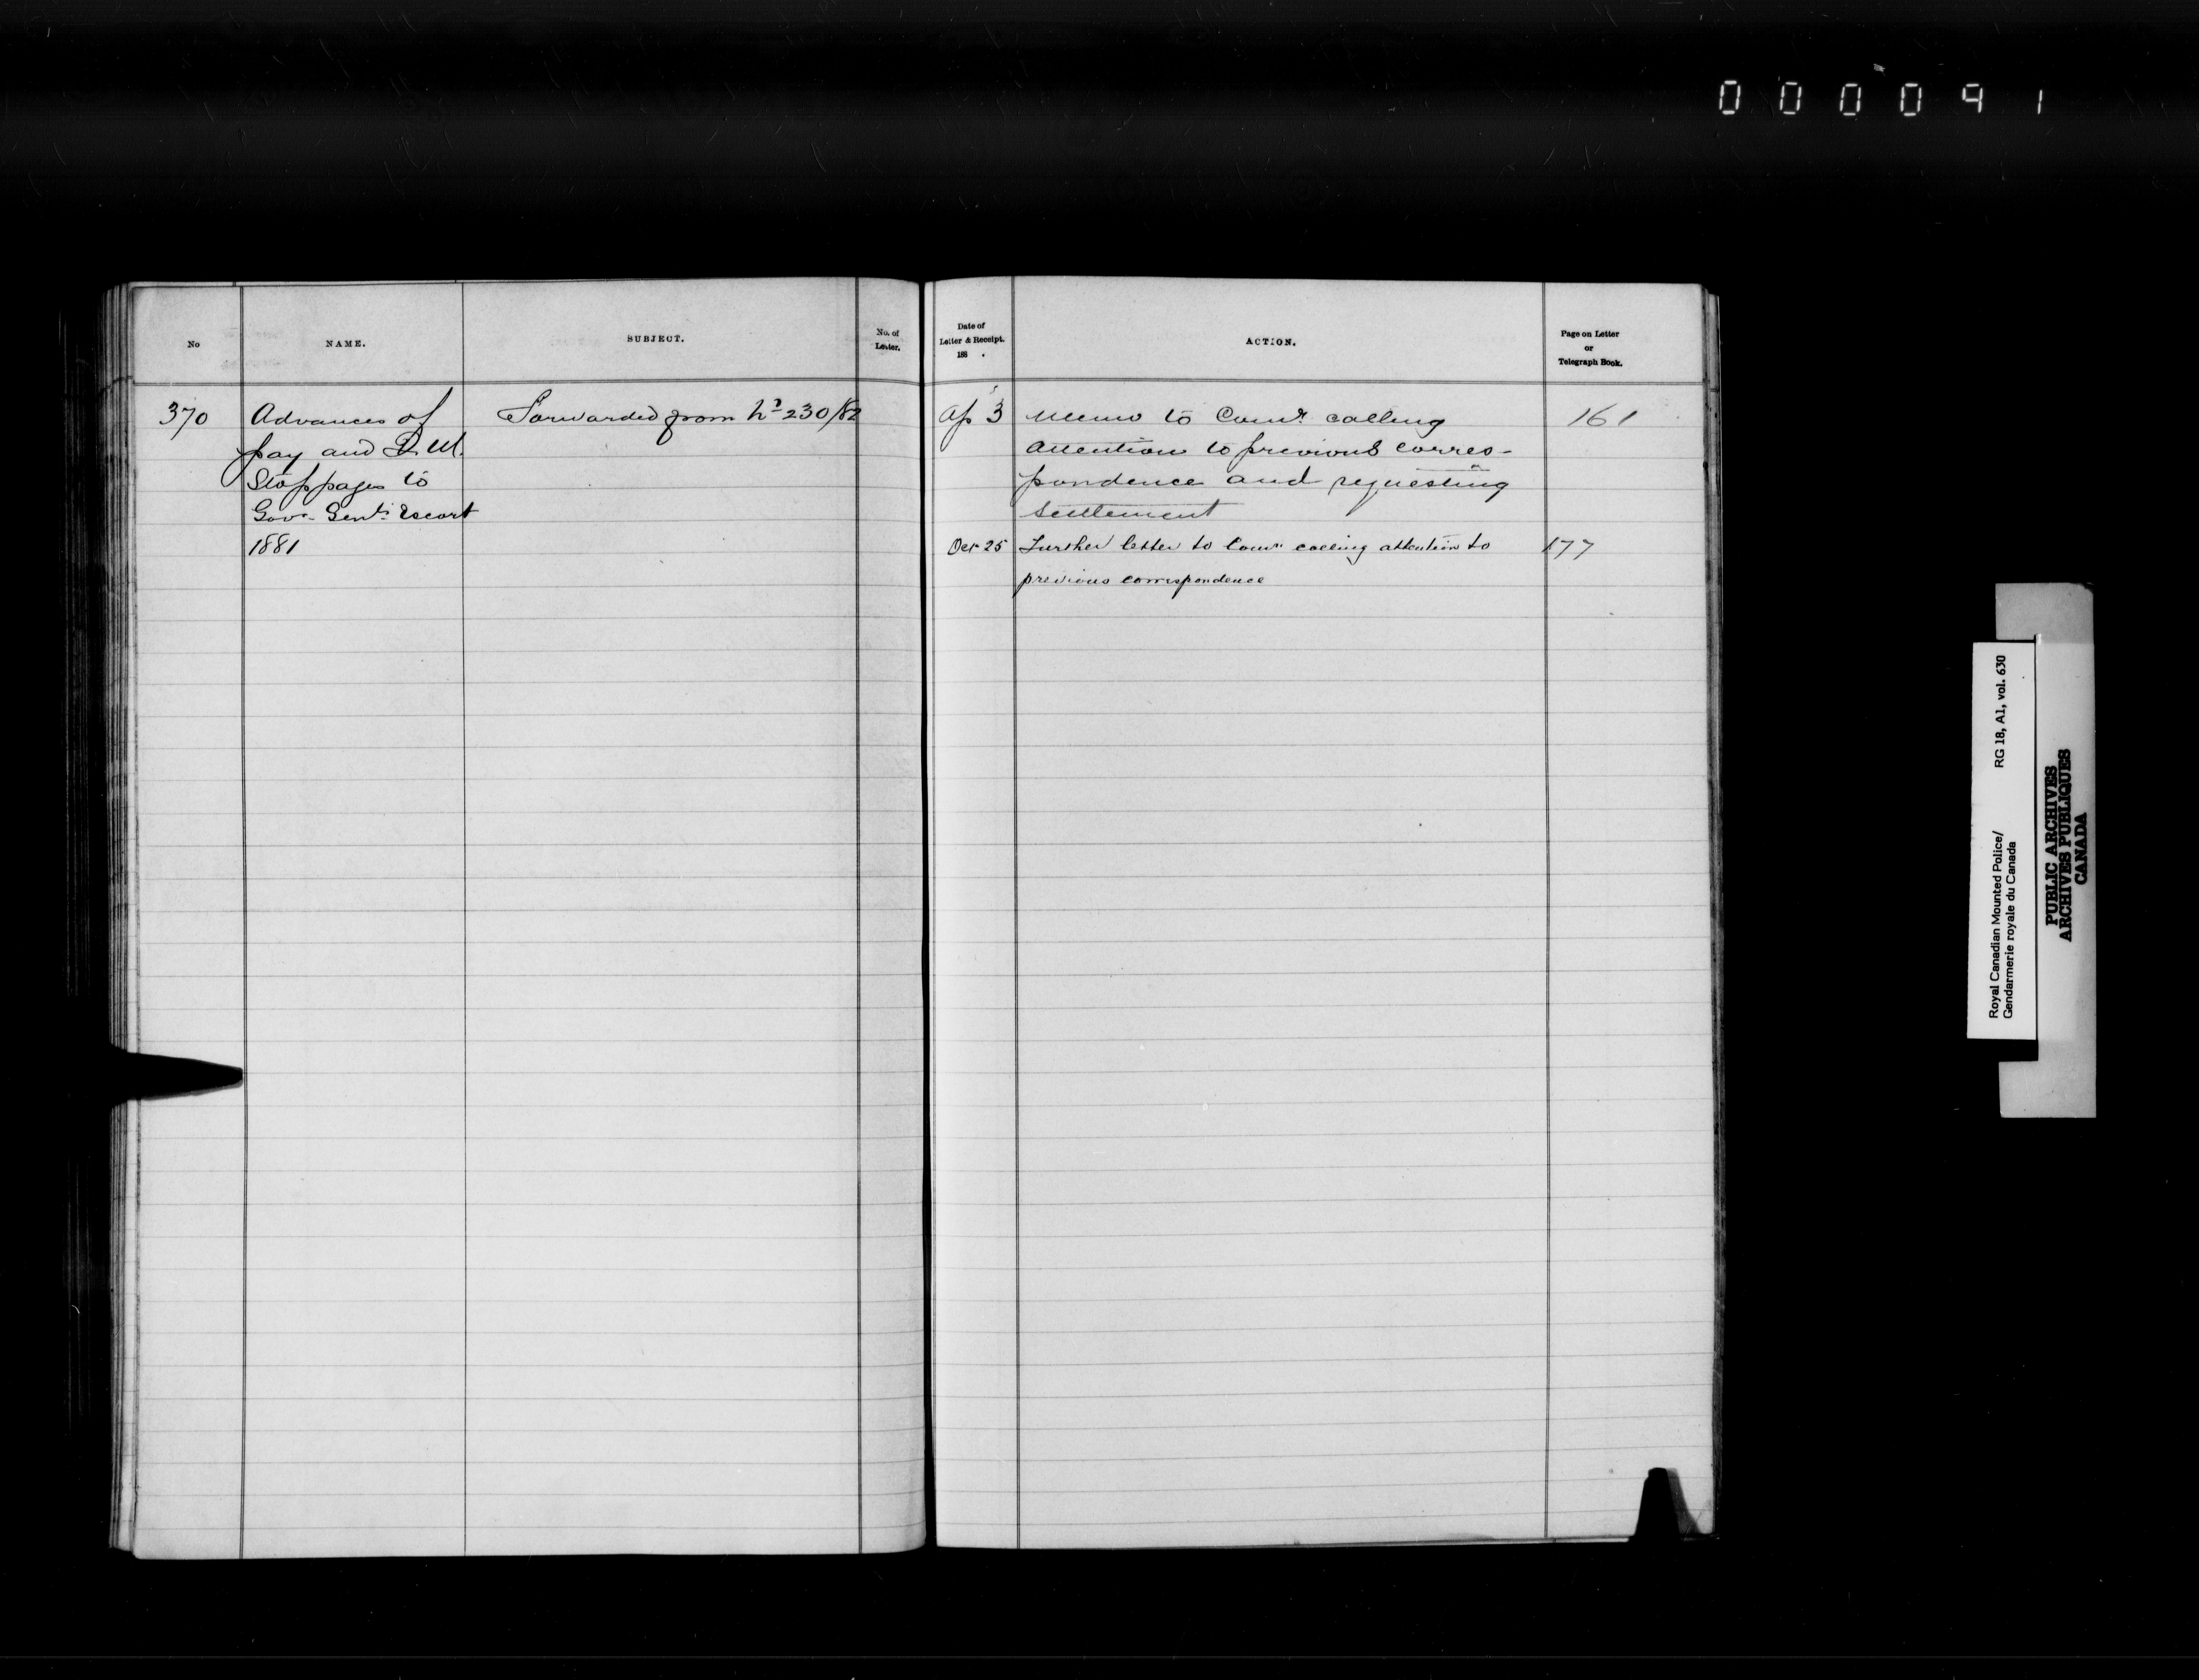 000091
No
NAME.
SUBJECT.
No. of
Letter.
Date of
Letter & Receipt.
188 .
ACTION.
Page on Letter
or
Telegraph Book.
370
Advances of
pay and Q.M.
Stoppages to
Govr Genl's Escort
1881
Forwarded from No 230/82
Ap 3
Memo to Comr calling
attention to previous corres-
pondence and requesting
settlement
161
Oct 25
Further letter to Comr calling attention to
previous correspondence
177
Royal Canadian Mounted Police/
Gendarmerie royale du Canada
RG 18, A1, vol. 630
PUBLIC ARCHIVES
ARCHIVES PUBLIQUES
CANADA